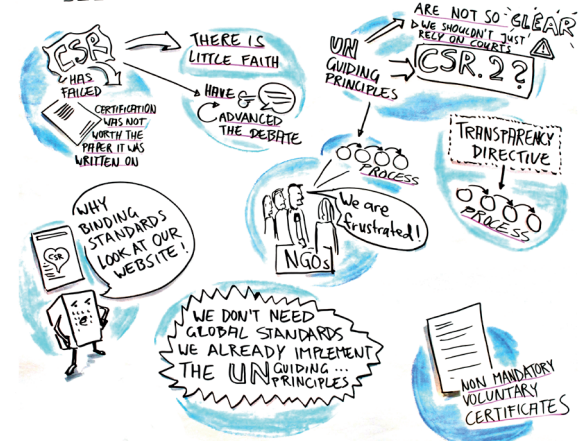 CSR
HAS
FAILED
CERTIFICATION
WAS NOT
WORTH THE
PAPER IT WAS
WRITTEN ON
THERE IS
LITTLE FAITH
HAVE &
ADVANCED
THE DEBATE
UN
GUIDING
PRINCIPLES
ARE NOT SO CLEAR
WE SHOULDN'T JUST
RELY ON COURTS
!
CSR.2?
PROCESS
TRANSPARENCY
DIRECTIVE
PROCESS
We are
frustrated!
NGOs
WHY
BINDING
STANDARDS
LOOK AT OUR
WEBSITE!
CSR
WE DON'T NEED
GLOBAL STANDARDS
WE ALREADY IMPLEMENT
THE UN GUIDING ...
PRINCIPLES
NON MANDATORY
VOLUNTARY
CERTIFICATES